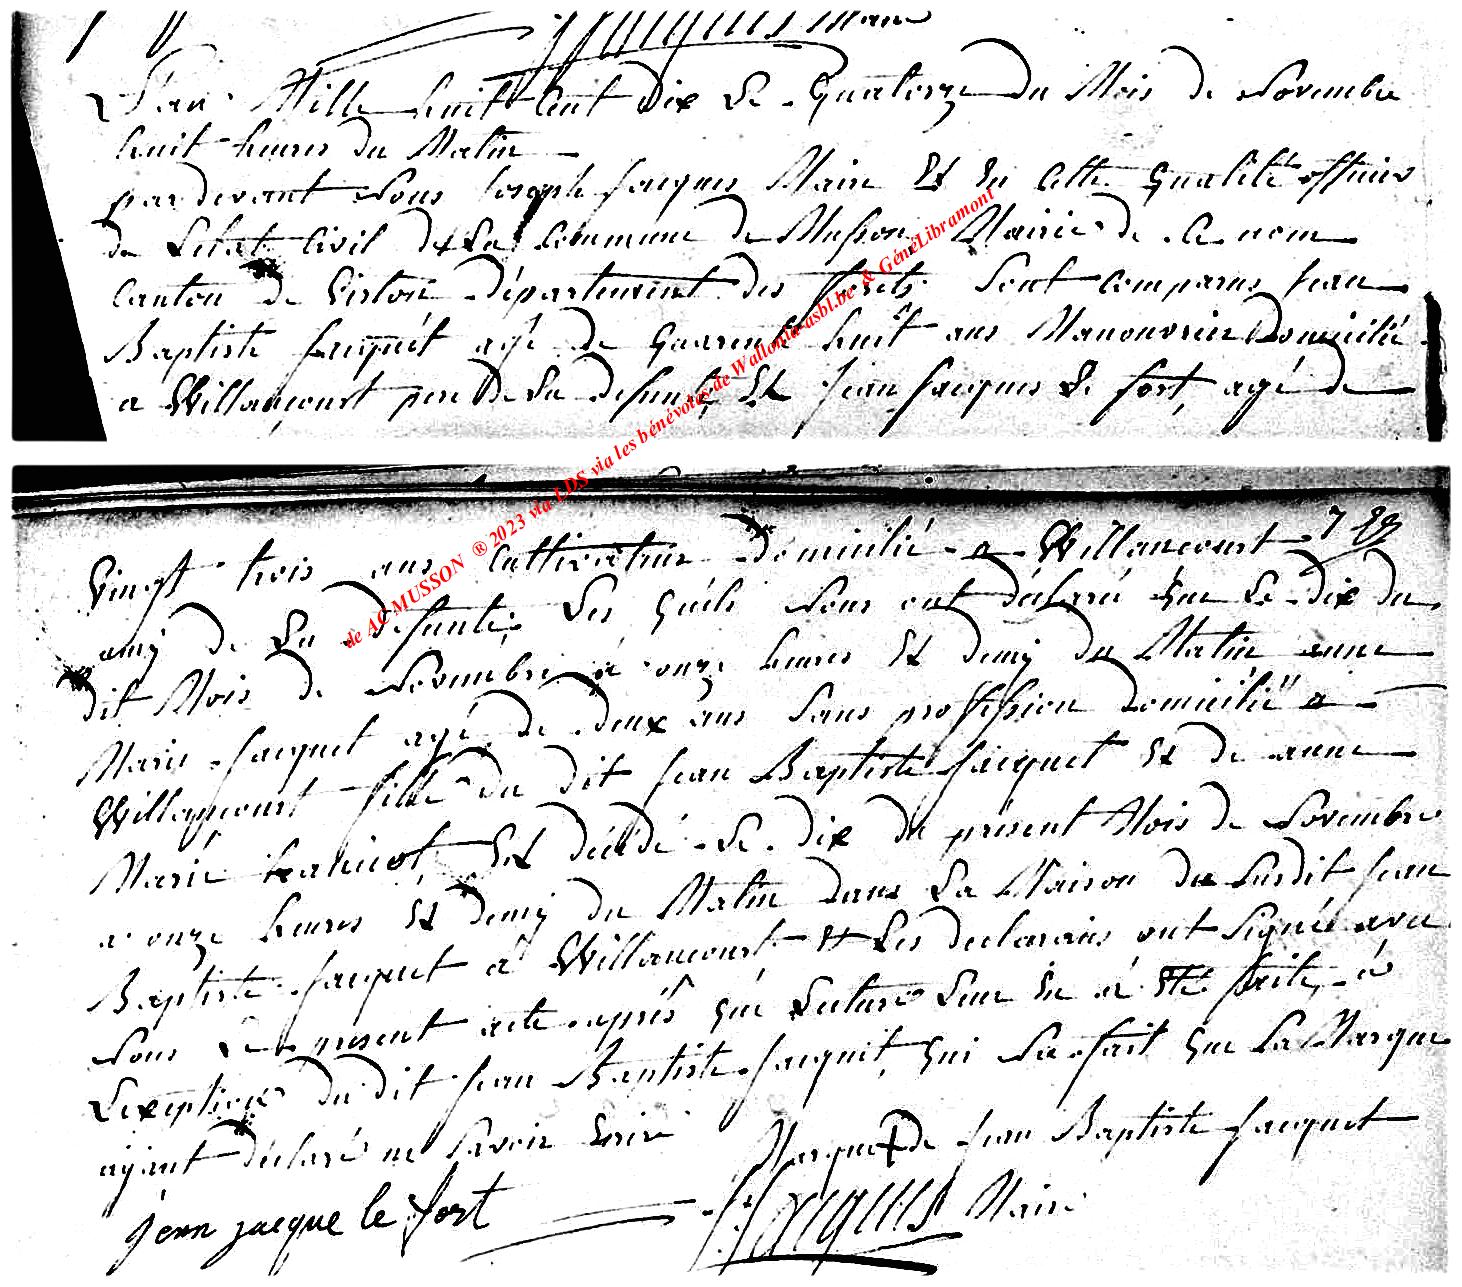 Jacques Maire
L'an Mille huit Cent Dix Le Quatorze du Mois de Novembre
huit heures du Matin
par devant Nous Joseph Jacques Maire Et En Cette Qualité officier
de L'etat Civil de La Commune de Musson Mairie de Ce nom
Canton de Virton département des forêts Sont Comparus Jean
Baptiste Jacquet agé de Quarente huit ans Manouvrier Domicilié
a Willancourt pere De La defunte, Et Jean Jacques Le fort, agé de
Vingt trois ans Cultivateur Domicilié a Willancourt
amy de La Defunte; Les Quels Nous ont déclaré Que Le dix du
dit Mois de Novembre à onze heures Et demy du Matin anne
Marie Jacquet agé de deux ans Sans profession Domiciliée a
Willancourt fille du dit Jean Baptiste Jacquet Et de anne
Marie , Est décédé Le dix du présent Mois de Novembre
a onze heures Et demy du Matin dans La Maison du Susdit Jean
Baptiste Jacquet a Willancourt Et Les declarans ont Signé avec
Nous Le present acte après Que Lecture Leur En a Eté faite, à
L'exception du dit Jean Baptiste Jacquet, Qui Na fait Que La Marque
ayant déclaré ne Savoir Ecrire
Marque de Jean Baptiste Jacquet
jean jacque le fort
J: Jacques Maire
de AC MUSSON ® 2023 via LDS via les bénévoles de Wallonia-asbl.be & GénéLibramont